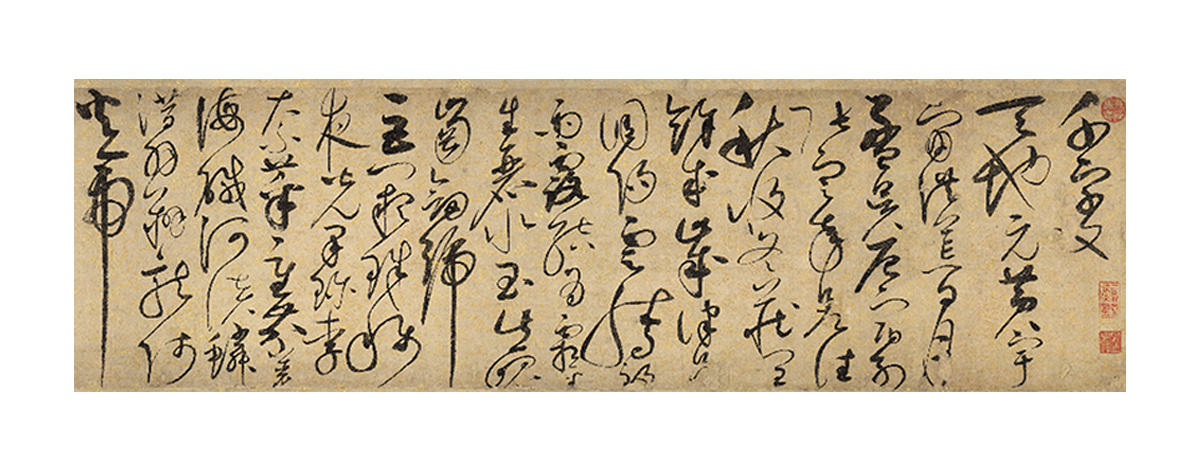 千字文
天地元黄宇
宙洪荒日月
盈昃辰宿列
張寒來暑往
秋收冬藏閏
餘成歲律呂
調陽雲騰致
雨露結為霜金
生麗水玉出崑
崗劍號
巨闕珠稱
夜光果珍李
柰菜重芥薑
海鹹河淡鱗
潛羽翔龍師
火帝